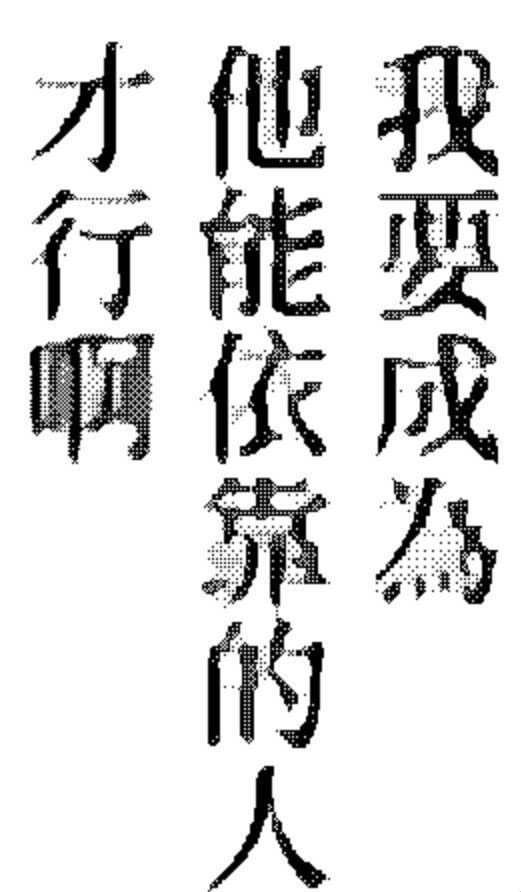 我要成為
他能依靠的人
才行啊